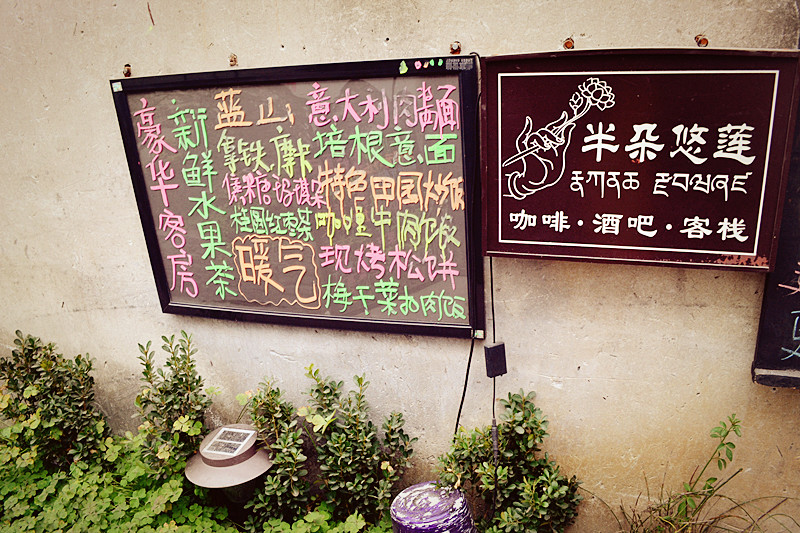 豪华客房
新鲜水果茶
蓝山
拿铁,摩卡
焦糖·玛琪朵
桂圆红枣茶
暖气
意大利肉麵
培根意面
特色田园炒饭
咖喱牛肉饭
现烤松饼
梅干菜扣肉饭
半朵悠莲
咖啡·酒吧·客栈